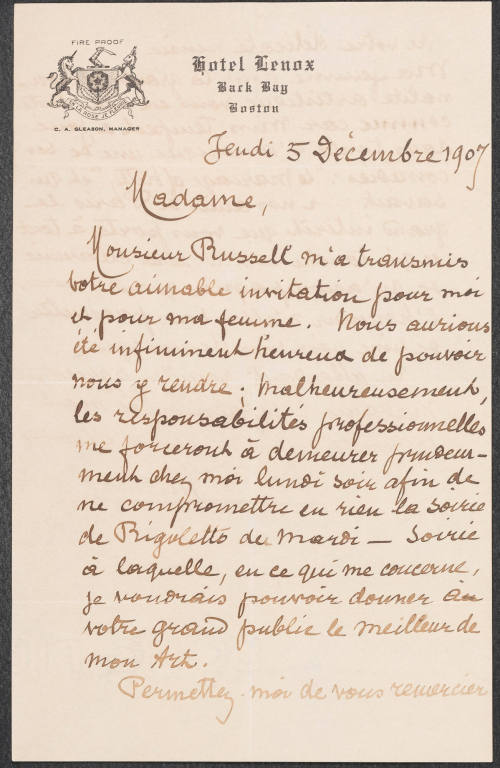 FIRE PROOF
LA ROSE JE FLEURIE
C. A. GLEASON, MANAGER
Hotel Lenox
Back Bay
Boston
Jeudi 5 Décembre 1907
Madame,
Monsieur Russell m'a transmis
votre aimable invitation pour moi
et pour ma femme. Nous aurions
été infiniment heureux de pouvoir
nous y rendre; Malheureusement,
les responsabilités professionnelles
me forceront à demeurer prudem-
ment chez moi lundi soir afin de
ne compromettre en rien la soirée
de Rigoletto de Mardi — Soirée
à laquelle, en ce qui me concerne,
je voudrais pouvoir donner au
votre grand public le meilleur de
mon Art.
Permettez-moi de vous remercier